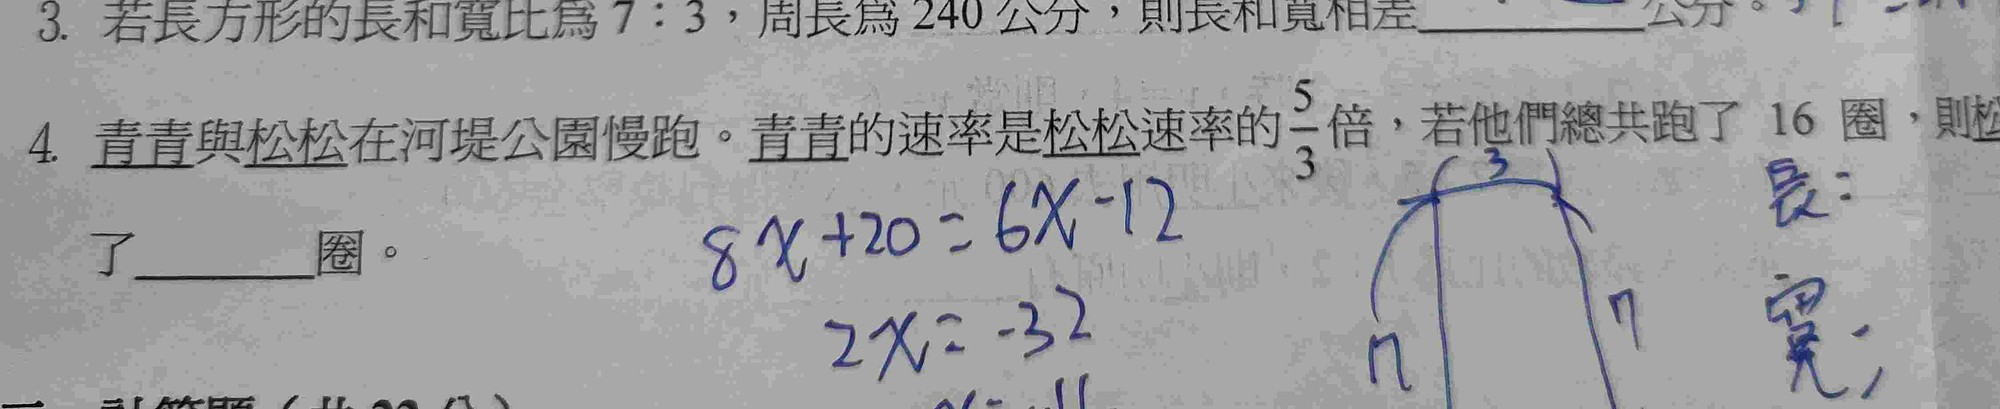 3. 若長方形的長和寬比為 7：3，周長為 240 公分，則長和寬相差________公分。
4. 青青與松松在河堤公園慢跑。青青的速率是松松速率的 5/3 倍，若他們總共跑了 16 圈，則松
了________圈。
8x+20=6x-12
2x=-32
3
7
7
長：
寬：